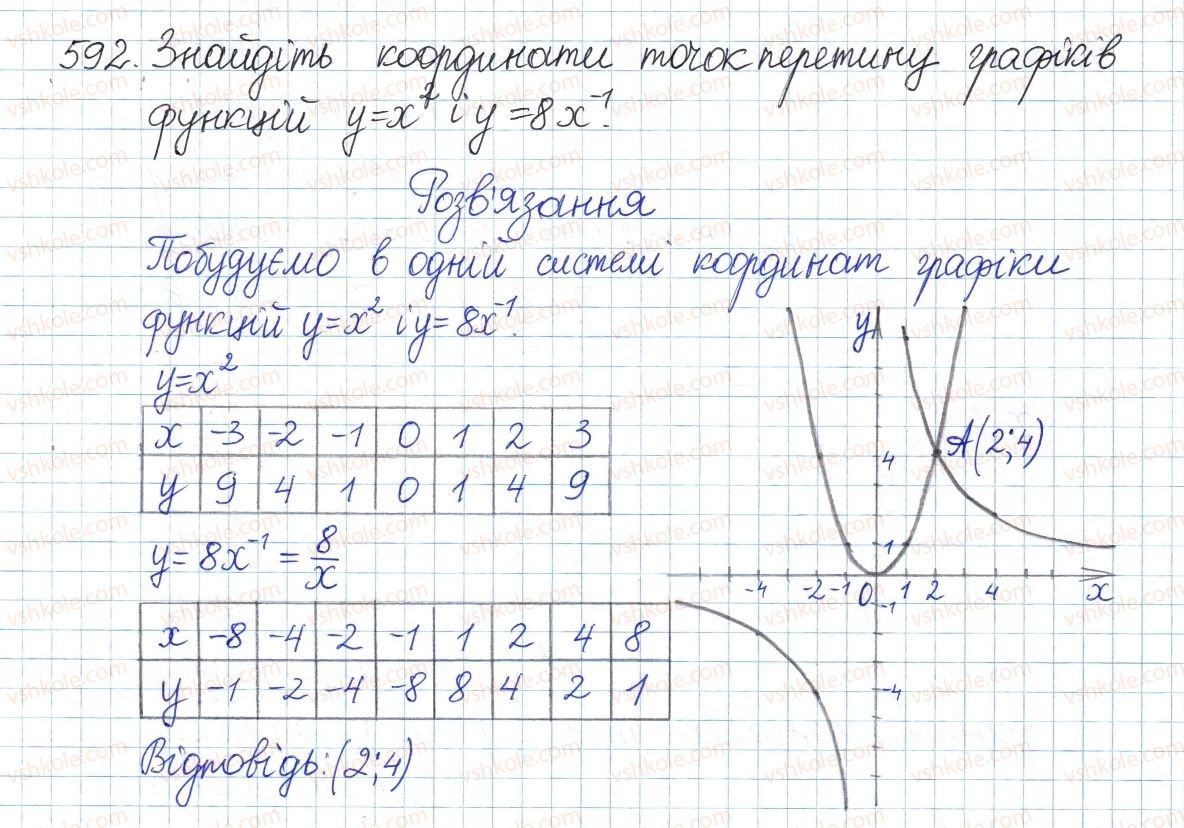 592. Знайдіть координати точок перетину графіків
функцій y=x² і y=8x⁻¹.
Розв'язання
Побудуємо в одній системі координат графіки
функцій y=x² і y=8x⁻¹.
y=x²
x -3 -2 -1 0 1 2 3
y 9 4 1 0 1 4 9
y=8x⁻¹=8/x
x -8 -4 -2 -1 1 2 4 8
y -1 -2 -4 -8 8 4 2 1
Відповідь: (2;4)
y
A(2;4)
4
1
-4 -2 -1 0 1 2 4 x
-1
-4
vshkole.com